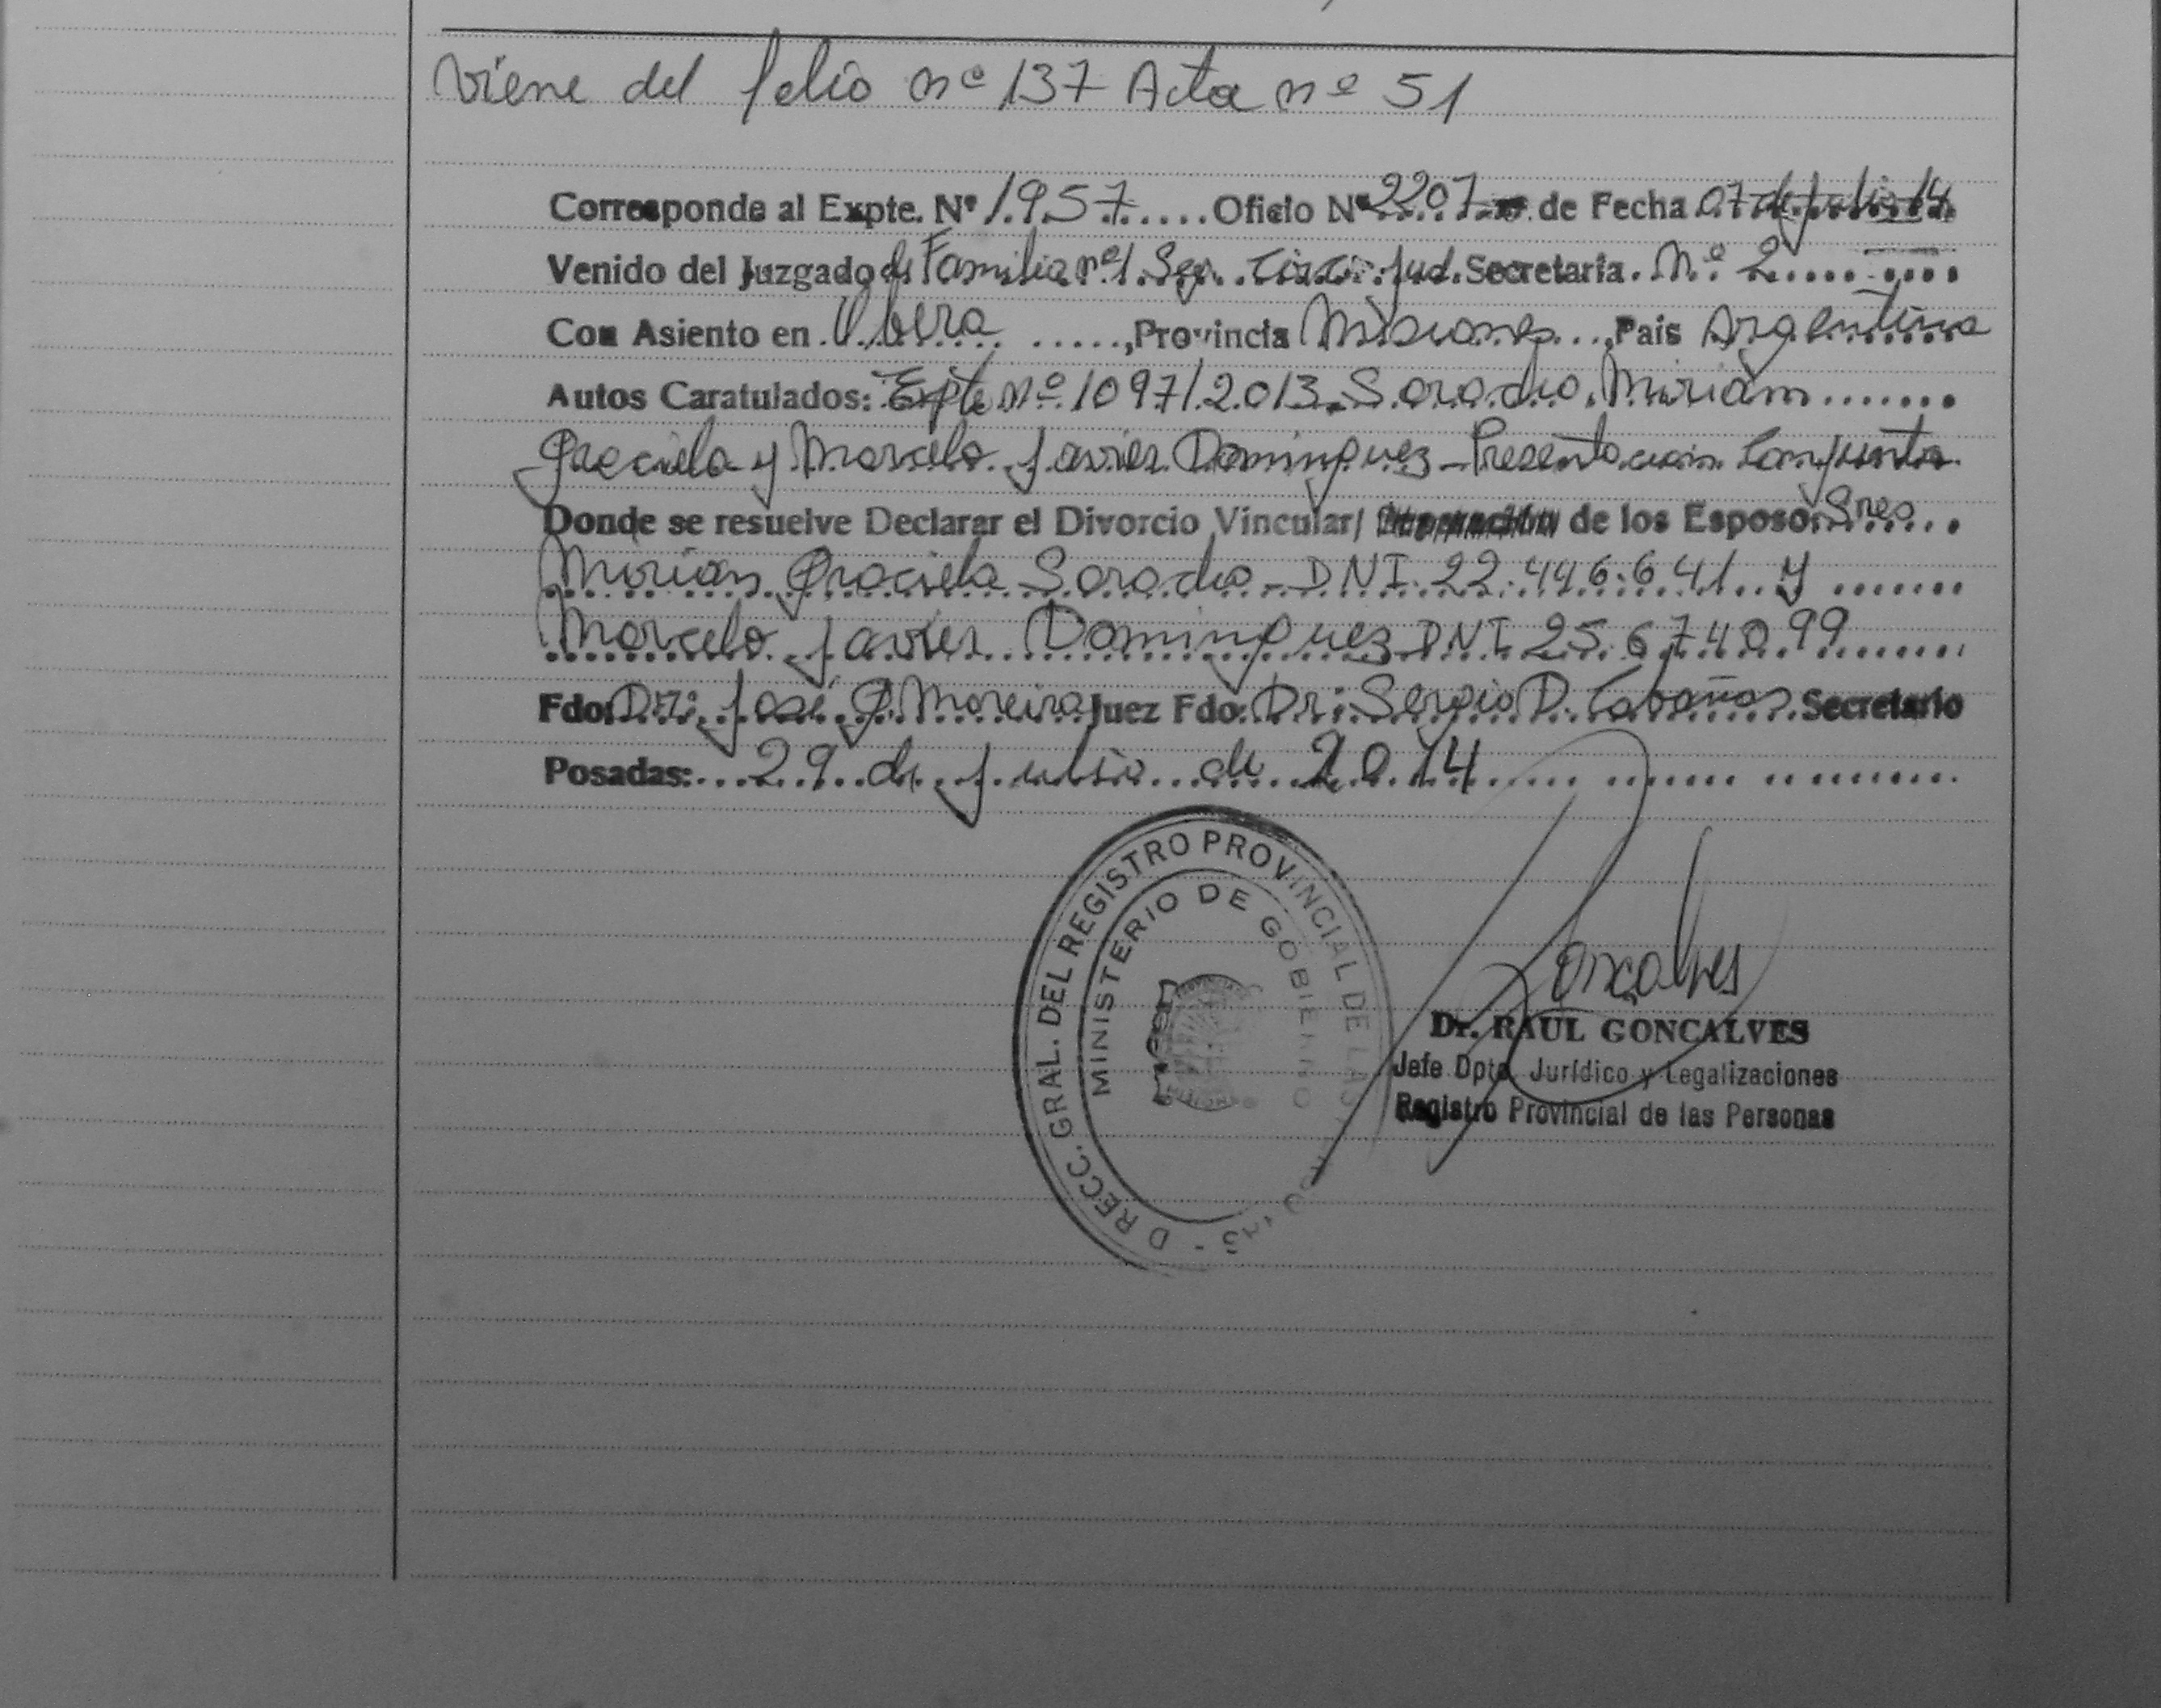 Viene del folio nº 137 Acta nº 51
Corresponde al Expte. Nº 1957 Oficio Nº 2207 de Fecha 07 de julio 14
Venido del Juzgado de Familia nº 1 Seg. Circ. Jud. Secretaria. Nº 2
Con Asiento en Obera, Provincia Misiones, Pais Argentina
Autos Caratulados: Expte nº 1097/2013. Sorodio Mirian
Graciela y Marcelo Javier Dominguez - Presentacion Conjunta
Donde se resuelve Declarar el Divorcio Vincular/ de los Esposo: Sres
Mirian Graciela Sorodio - DNI. 22.446.641. y
Marcelo Javier Dominguez DNI 25.674099
Fdo: Dr: José G. Moreira Juez Fdo: Dr: Sergio D. Cabañas. Secretario
Posadas: 29 de julio de 2014
DIRECC. GRAL. DEL REGISTRO PROVINCIAL DE LAS
MINISTERIO DE GOBIERNO
Goncalves
Dr. RAUL GONCALVES
Jefe Dpto. Jurídico y Legalizaciones
Registro Provincial de las Personas